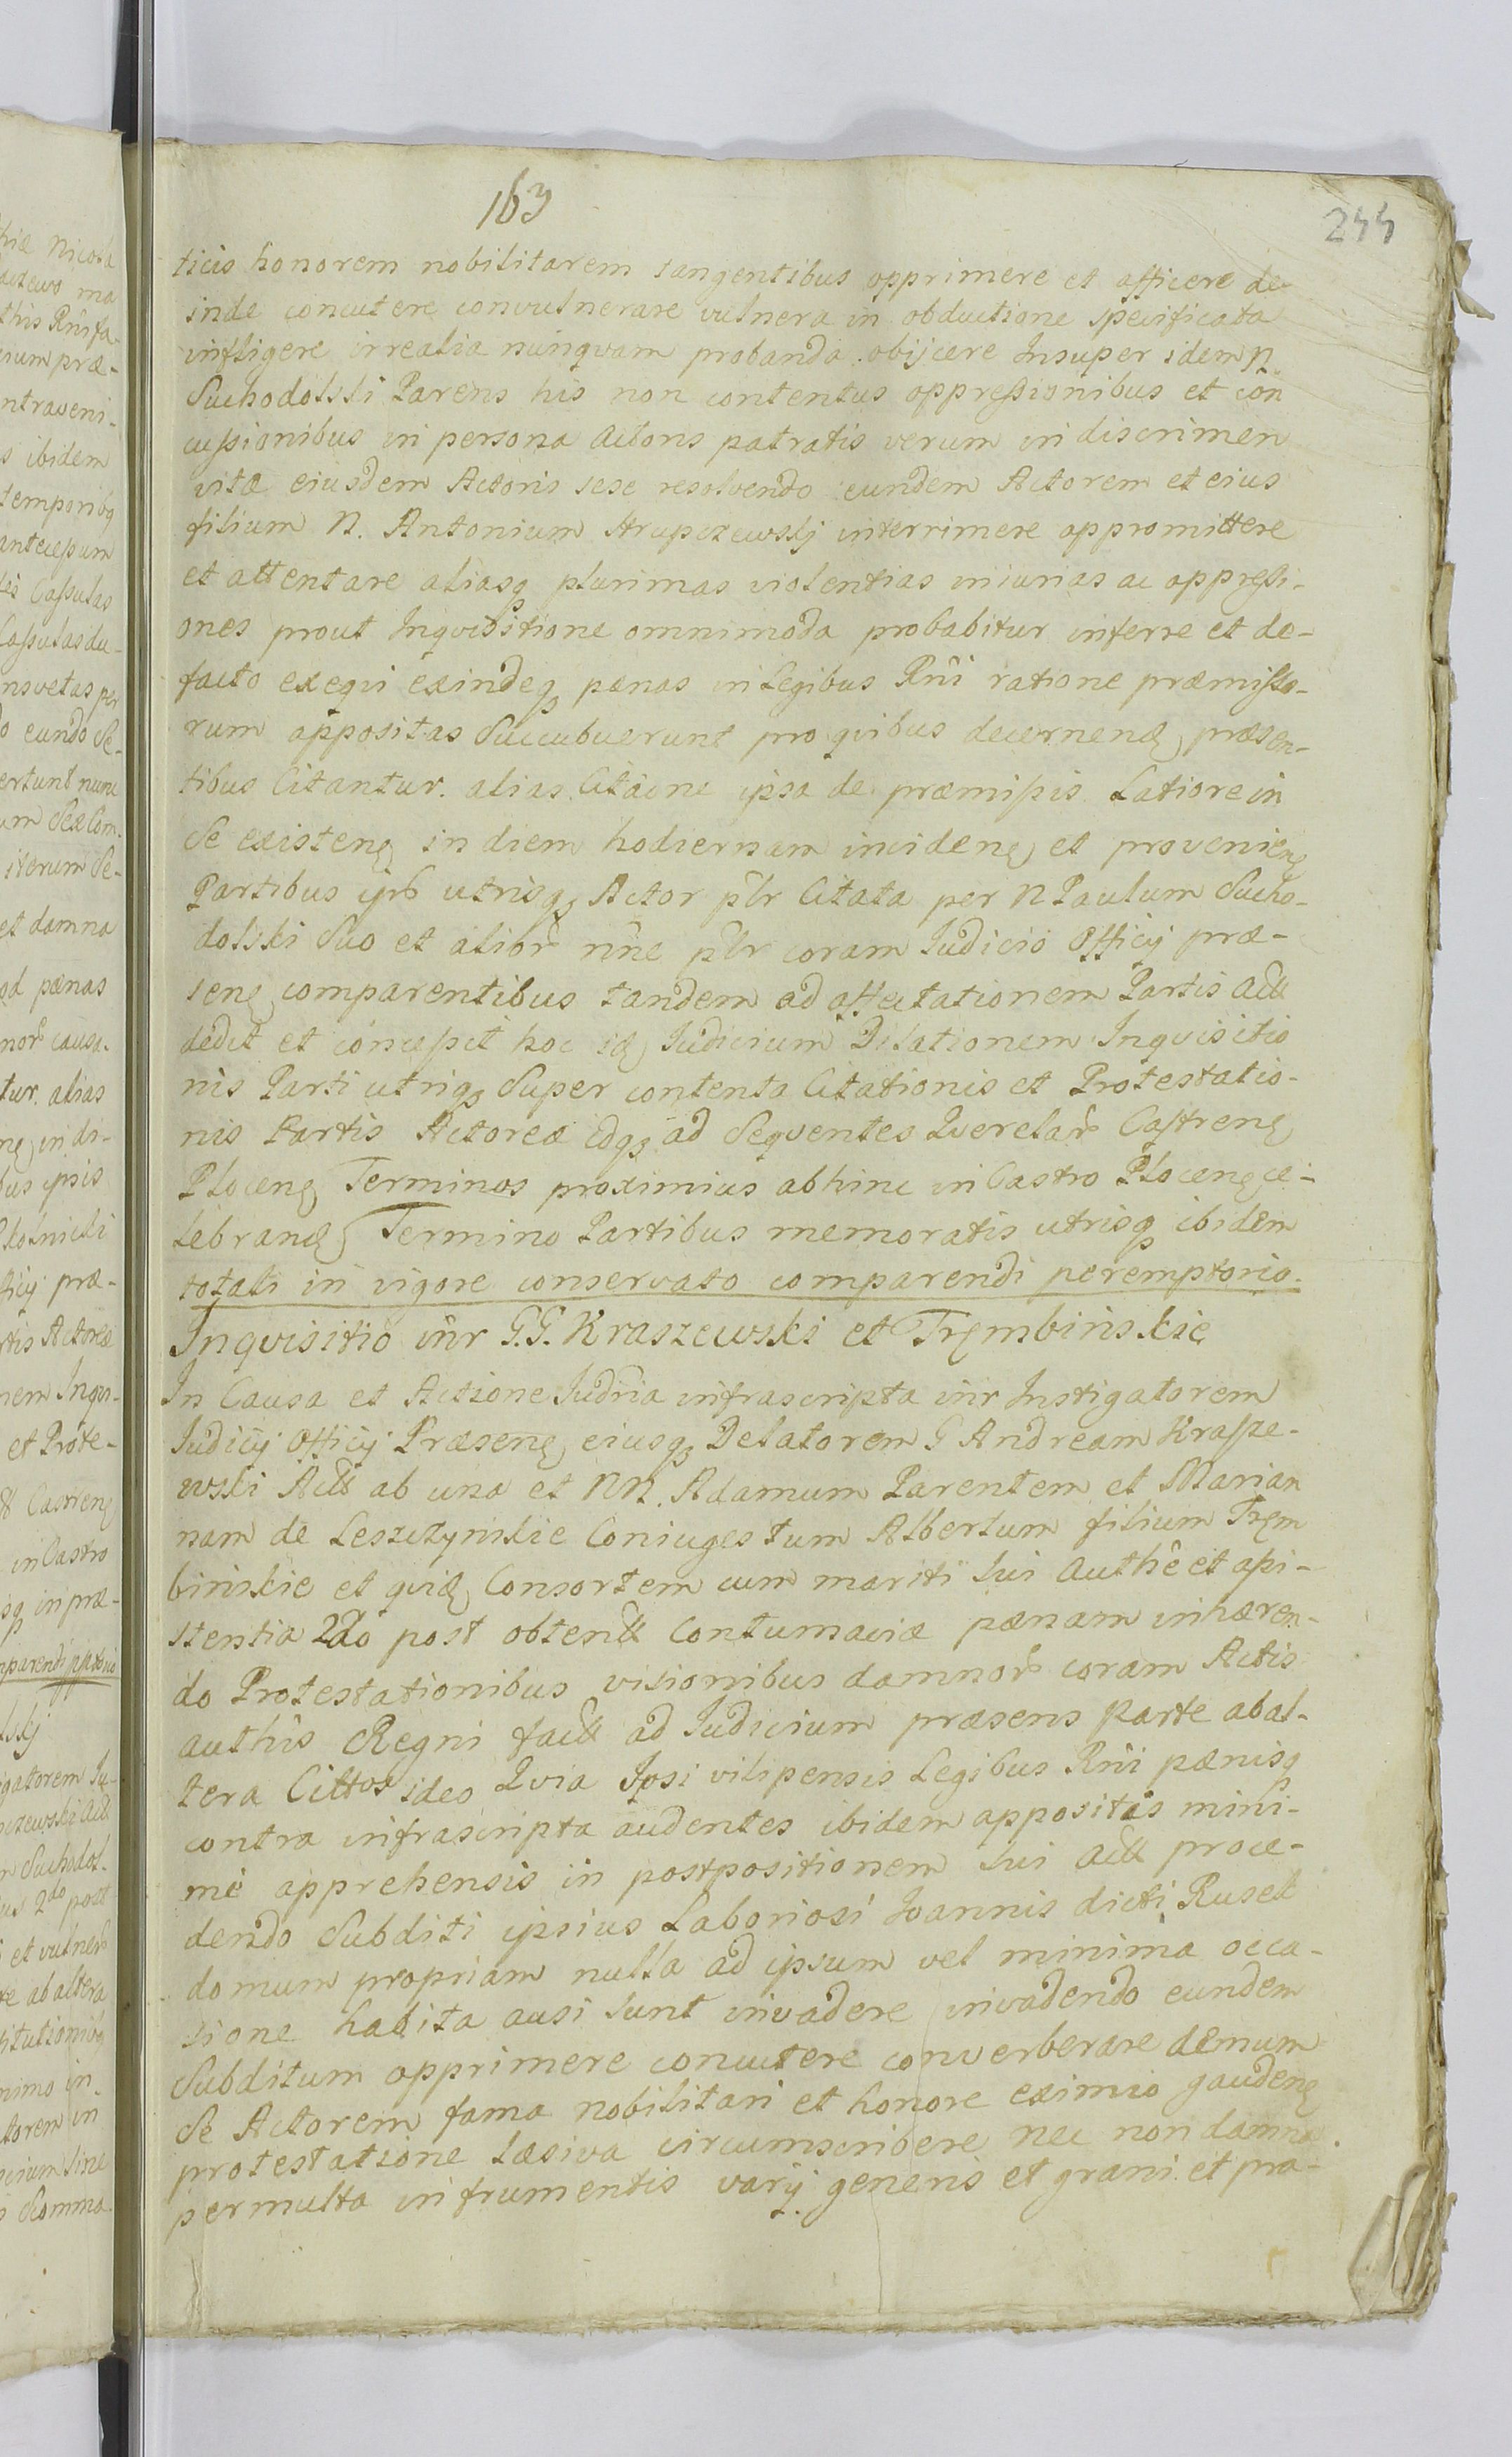 163
244
ticis honorem nobilitarem tangentibus opprimere et afficere de
inde concutere convulnerare vulnera in obductione specificata
infligere irrealia nunqvam probanda obijcere Insuper idem N
Suchodolski Parens his non contentus oppressionibus et con
cussionibus in persona Actoris patratis verum in discrimen
vitæ eiusdem Actoris sese resolvendo eundem Actorem et eius
filium N. Antonium Strupczewskj interrimere appromittere
et attentare aliasq plurimas violentias iniurias ac oppressi-
ones prout Inqvisitione omnimoda probabitur inferre et de-
facto exeqvi exindeq pænas in Legibus Rni ratione præmisso-
rum appositas Succubuerunt pro qvibus decernend præsen-
tibus Citantur. alias Citãone ipsa de præmissis Latiore in
Se existen in diem hodiernam inciden et provenien
Partibus ipis utrisq Actor plr Citata per N Paulum Sucho-
dolski Suo et alior nne plr coram Judicio Officij præ-
sen comparentibus tandem ad affectationem Partis Act
dedit et concessit hoc id Judicium Dilationem Inqvisitio
nis Parti utriq Super contenta Citationis et Protestatio-
nis Partis Actoreæ idq ad Seqventes Qverelar Castren
Plocen Terminos proximius abhinc in Castro Plocen ce-
lebrand Termino Partibus memoratis utrisq ibidem
totali in vigore conservato comparendi peremptorio.
Inqvisitio inr G.G. Kraszewski et Tręmbinskie
In Causa et Actione Judria infrascripta inr Instigatorem
Judicij Officij Præsen eiusq Delatorem G Andream Krasze-
wski Act ab una et NN. Adamum Parentem et Marian
nam de Leszczynskie Coniuges tum Albertum filium Tręm
binskie et qvid Consortem cum mariti sui Authê et assi-
stentia 2do post obtent Contumaciæ pænam inhæren-
do Protestationibus visionibus damnor coram Actis
authis Regni fact ad Judicium præsens parte ab al-
tera Cittos ideo Qvia Ipsi vilipensis Legibus Rni pænisq
contra infrascripta audentes ibidem appositis mini-
me apprehensis in postpositionem sui Act proce-
dendo Subditi ipsius Laboriosi Joannis dicti Rusek
domum propriam nulla ad ipsum vel minima occa-
sione habita ausi sunt invadere invadendo eundem
Subditum opprimere concutere converberare demum
Se Actorem fama nobilitari et honore eximio gauden
protestatione læsiva circumscribere nec non damna
permulta in frumentis varij generis et grani et pra-